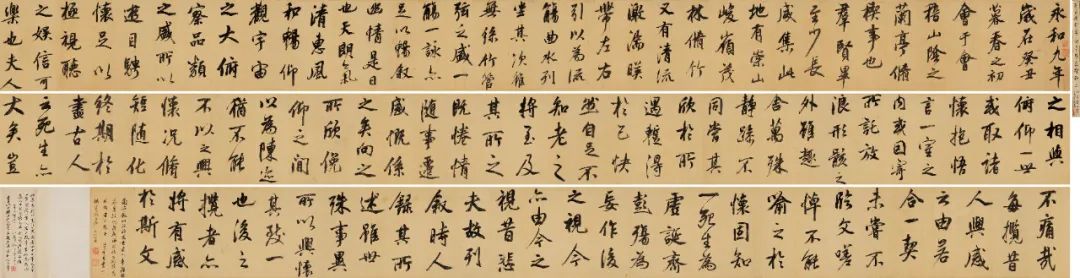 永和九年
歲在癸丑
暮春之初
會于會
稽山陰之
蘭亭脩
禊事也
羣賢畢
至少長
咸集此
地有崇山
峻嶺茂
林脩竹
又有清流
激湍暎
帶左右
引以為流
觴曲水列
坐其次雖
無絲竹管
弦之盛一
觴一詠亦
足以暢敘
幽情是日
也天朗氣
清惠風
和暢仰
觀宇宙
之大俯
察品類
之盛所以
遊目騁
懷足以
極視聽
之娛信可
樂也夫人
之相與
俯仰一世
或取諸
懷抱悟
言一室之
內或因寄
所託放
浪形骸之
外雖趣
舍萬殊
靜躁不
同當其
欣於所
遇蹔得
於己快
然自足不
知老之
將至及
其所之
既惓情
隨事遷
感慨係
之矣向之
所欣俛
仰之間
以為陳迹
猶不能
不以之興
懷況脩
短隨化
終期於
盡古人
云死生亦
大矣豈
不痛哉
每攬昔
人興感
之由若
合一契
未嘗不
臨文嗟
悼不能
喻之於
懷固知
一死生為
虛誕齊
彭殤為
妄作後
之視今
亦由今之
視昔悲
夫故列
敘時人
錄其所
述雖世
殊事異
所以興懷
其致一
也後之
攬者亦
將有感
於斯文